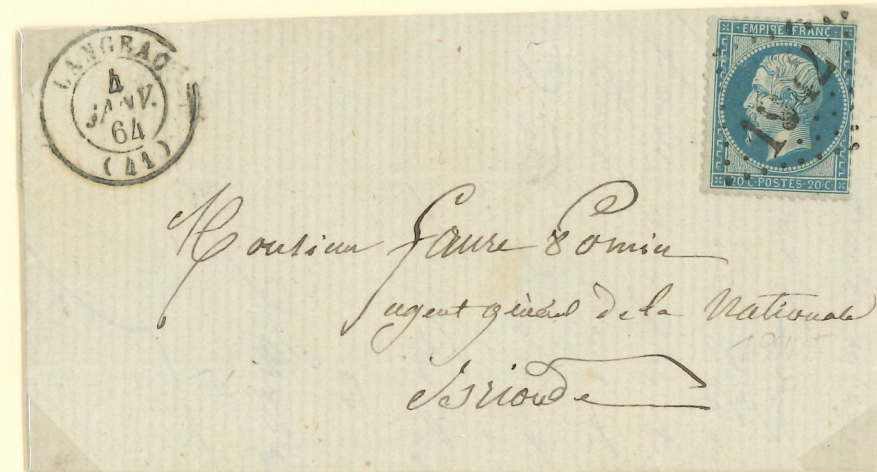 LANGEAC
4
JANV.
64
(41)
EMPIRE FRANC
20 C·POSTES·20 C
Monsieur Faure Pomier
agent général de la Nationale
Brioude